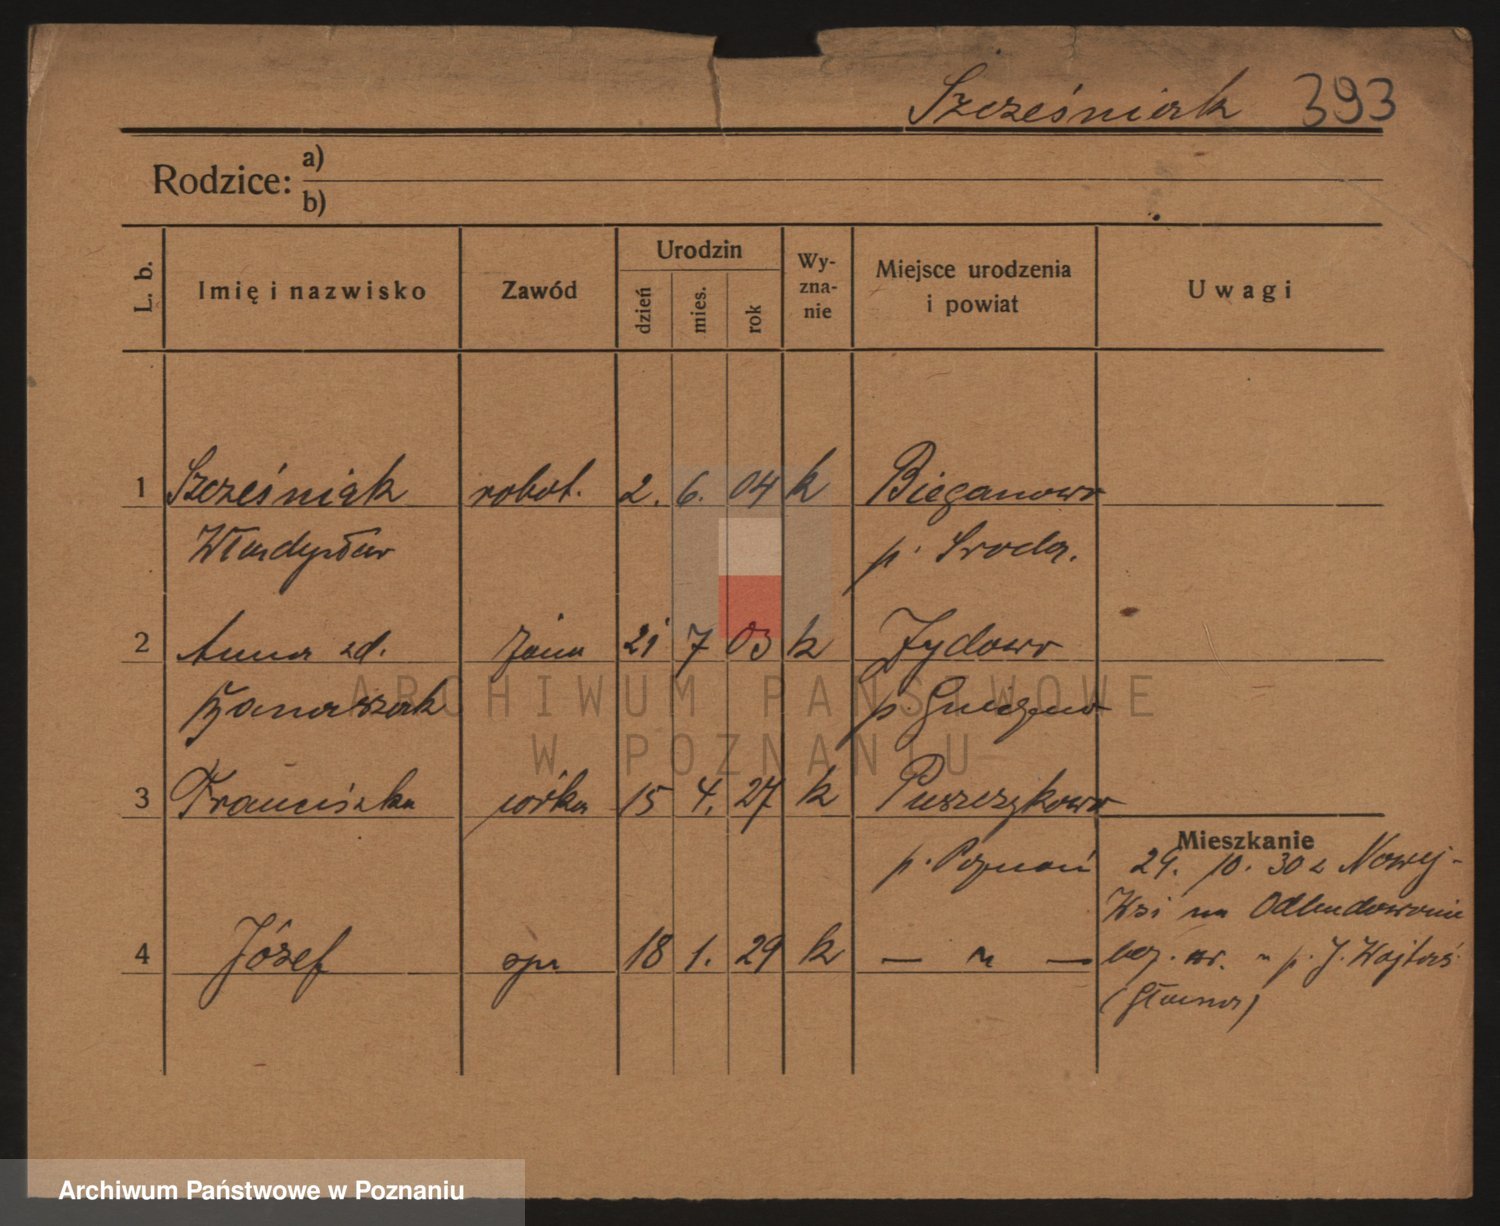 Szcześniak 393
Rodzice: a)
b)
L. b. Imię i nazwisko Zawód Urodzin dzień mies. rok Wy-zna-nie Miejsce urodzenia i powiat Uwagi
1 Szcześniak robot. 2. 6. 04 k Bieganowo
Władysław p. Środa.
2 Anna zd. żona 21 7 03 k Żydowo
Banaszak p. Gniezno
ARCHIWUM PAŃSTWOWE
W POZNANIU
3 Franciszka córka 15 4. 27 k Puszczykowo
Mieszkanie
p. Poznań 29. 10. 30 z Nowej-
Wsi na Odbudowanie
4 Józef syn 18 1. 29 k — " — bez. nr. " p. J. Wojtaś
(Głuszna)
Archiwum Państwowe w Poznaniu